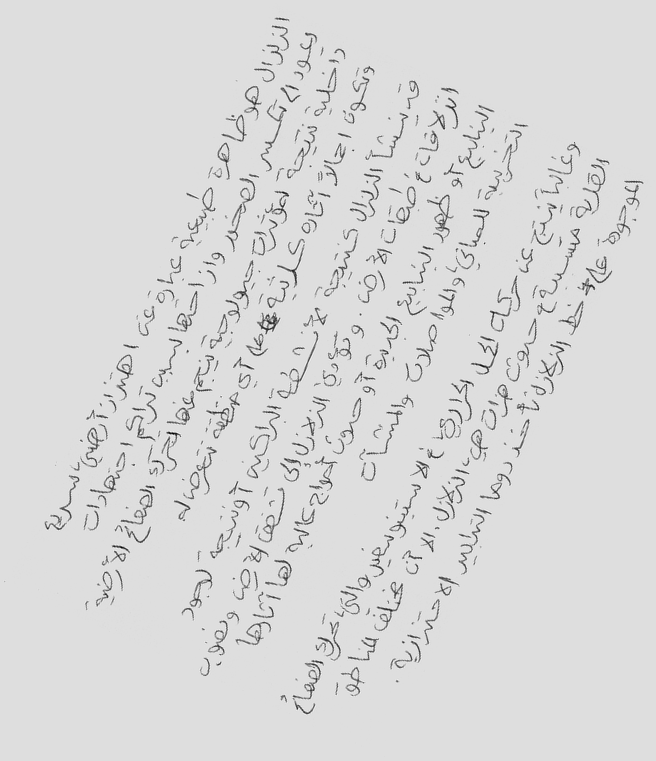 الزلزال هو ظاهرة طبيعية عبارة عن اهتزاز أرضي سريع
يعود إلى تكسر الصخور وإزاحتها بسبب تراكم اجتهادات
داخلية نتيجة لمؤثرات جيولوجية ينجم عنها تحرك الصفائح الأرضية
وتكون اجمالاً كارثية على أي منطقة تتعرض له
قد ينشأ الزلزال كنتيجة لأنشطة البراكين أو نتيجة لوجود
انزلاقات في طبقات الأرض. وتؤدي الزلازل إلى تشقق الأرض ونضوب
الينابيع أو ظهور الينابيع الجديدة أو حدوث أمواج عالية لها آثارها
التخريبية للمباني والمواصلات والمنشآت
وغالباً ينتج عن حركات الحمل الحراري في الأسثينوسفير والتي تحرك الصفائح
القارية متسببة في حدوث هزات هي الزلازل. الا أن هنالك مناطق
الموجودة على خط الزلازل تأخذ دوما التدابير الاحترازية.